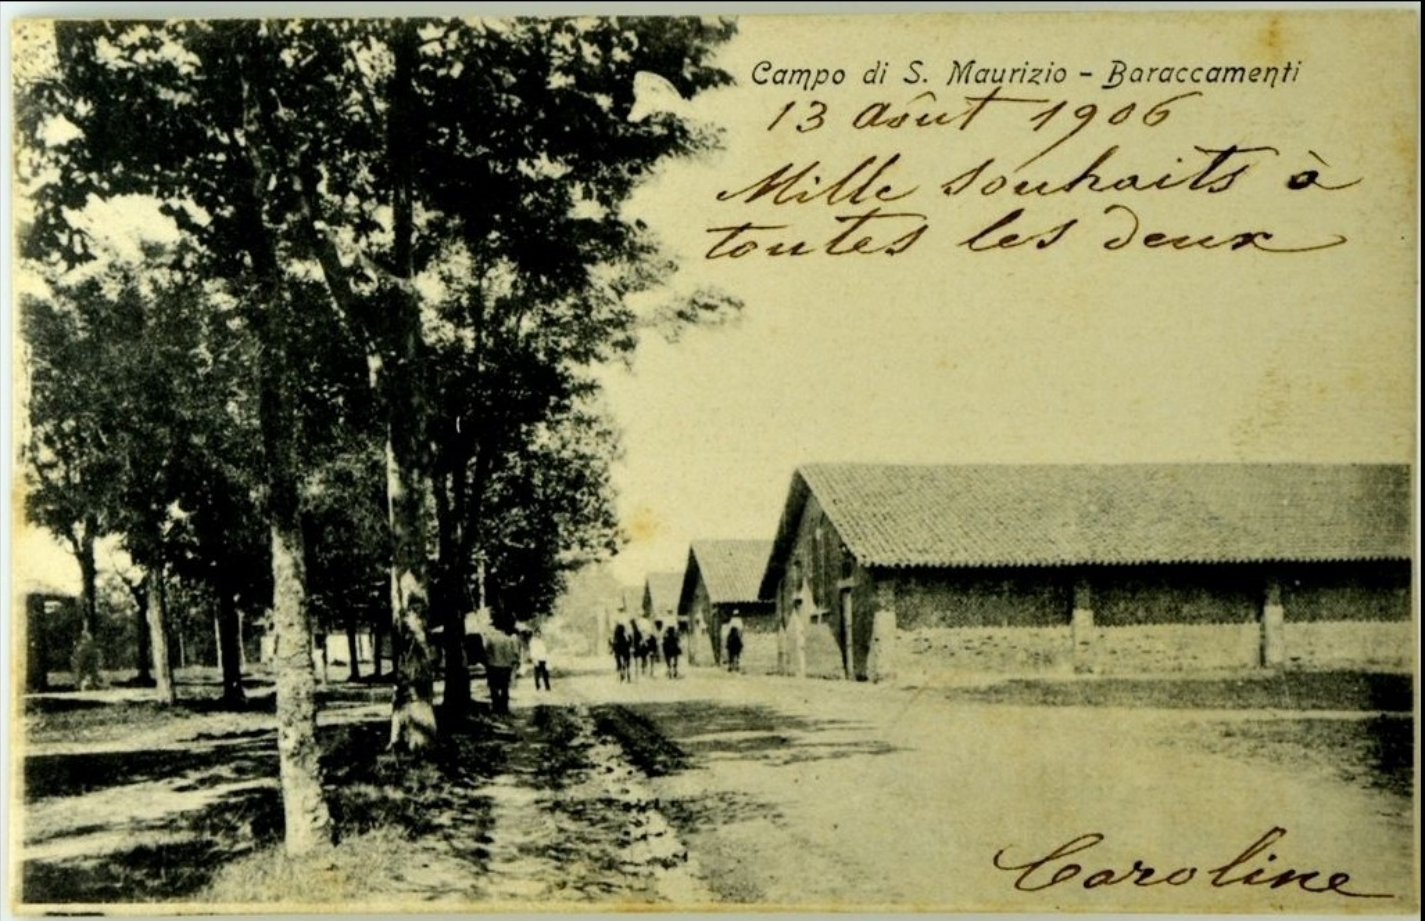 Campo di S. Maurizio - Baraccamenti
13 août 1906
Mille souhaits à
toutes les deux
Caroline